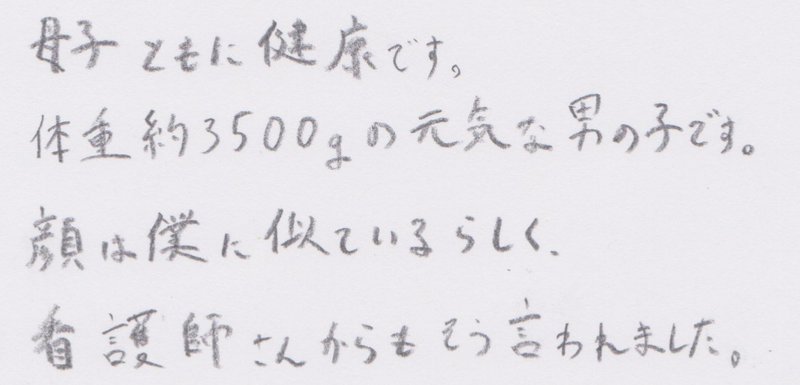 母子ともに健康です。
体重約3500gの元気な男の子です。
顔は僕に似ているらしく、
看護師さんからもそう言われました。